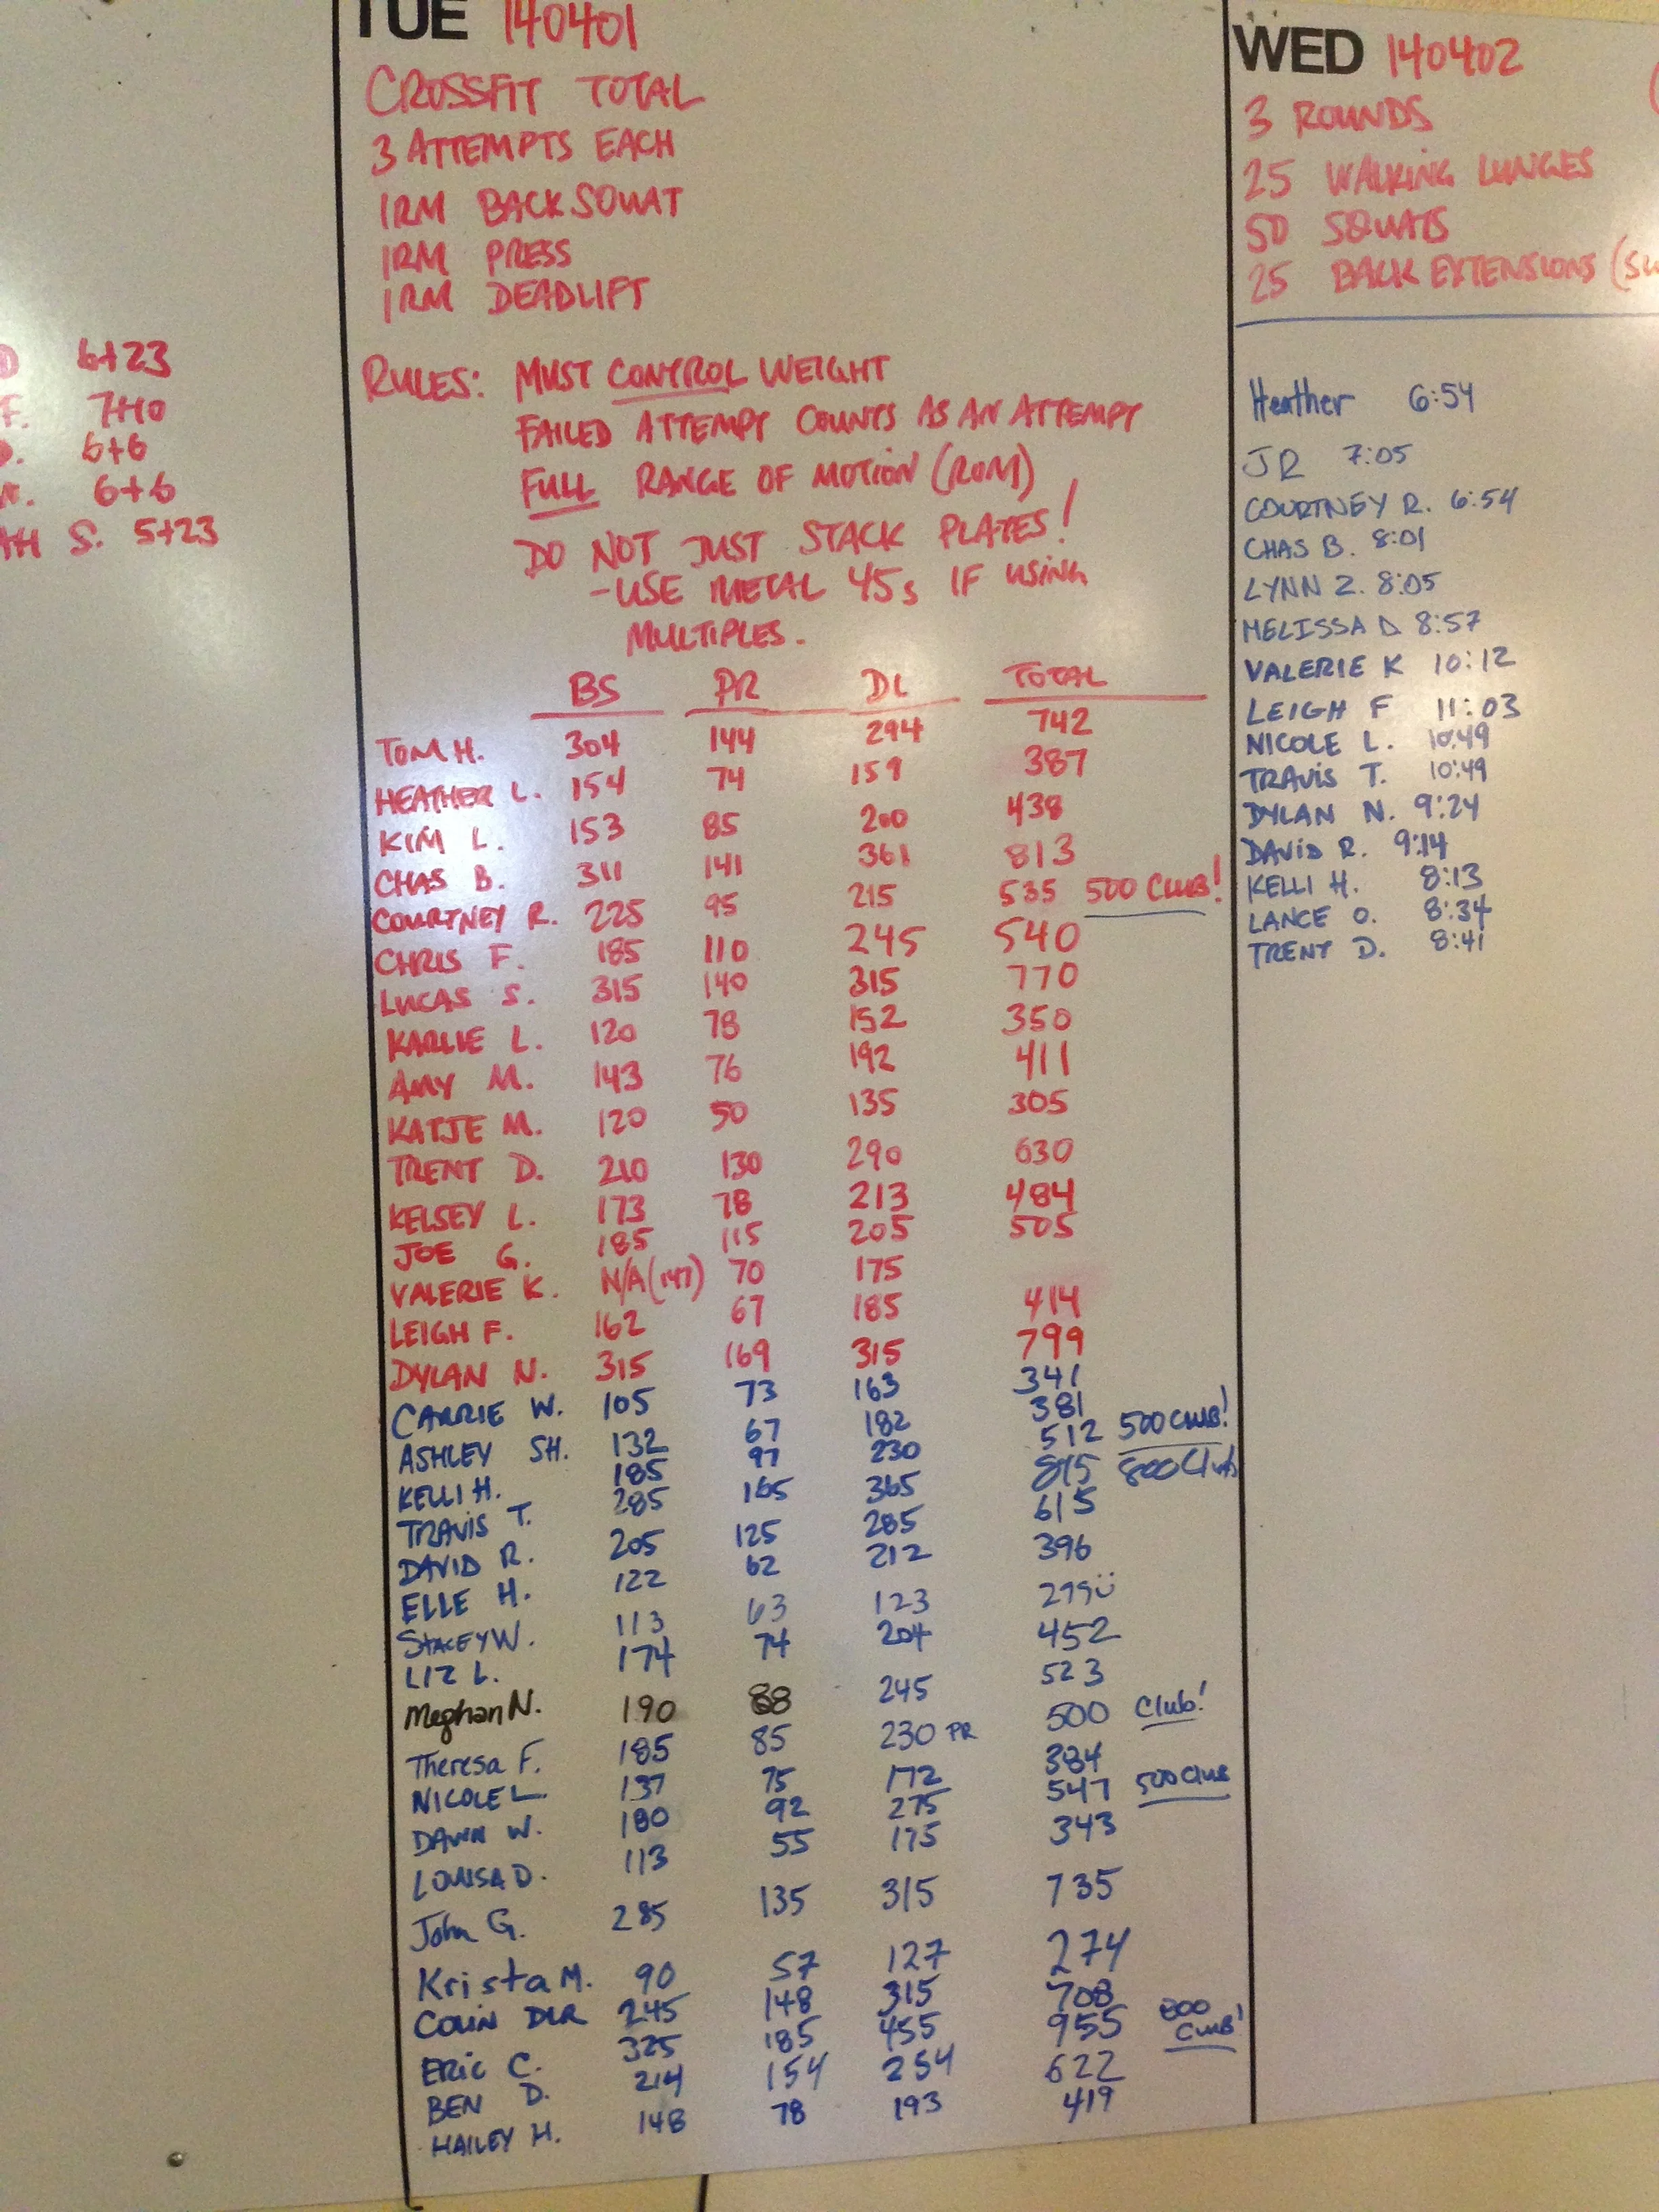 6+23
F. 7+10
6+6
6+6
S. 5+23
TUE 140401
CROSSFIT TOTAL
3 ATTEMPTS EACH
1RM BACK SQUAT
1RM PRESS
1RM DEADLIFT
RULES: MUST CONTROL WEIGHT
FAILED ATTEMPT COUNTS AS AN ATTEMPT
FULL RANGE OF MOTION (ROM)
DO NOT JUST STACK PLATES!
-USE METAL 45s IF USING
MULTIPLES.
BS PR DL TOTAL
TOM H. 304 144 294 742
HEATHER L. 154 74 159 387
KIM L. 153 85 200 438
CHAS B. 311 141 361 813
COURTNEY R. 225 95 215 535 500 CLUB!
CHRIS F. 185 110 245 540
LUCAS S. 315 140 315 770
KARLIE L. 120 78 152 350
AMY M. 143 76 192 411
KATJE M. 120 50 135 305
TRENT D. 210 130 290 630
KELSEY L. 173 78 213 484
JOE G. 185 115 205 505
VALERIE K. N/A (147) 70 175
LEIGH F. 162 67 185 414
DYLAN N. 315 169 315 799
CARRIE W. 105 73 163 341
ASHLEY SH. 132 67 182 381
KELLI H. 185 97 230 512 500 CLUB!
TRAVIS T. 285 165 365 815 800 Club
DAVID R. 205 125 285 615
ELLE H. 122 62 212 396
STACEY W. 113 63 123 299
LIZ L. 174 74 204 452
Meghan N. 190 88 245 523
Theresa F. 185 85 230 PR 500 Club!
NICOLE L. 137 75 172 384
DAWN W. 180 92 275 547 500 Club
LOUISA D. 113 55 175 343
John G. 285 135 315 735
Krista M. 90 57 127 274
COLIN DLR 245 148 315 708
ERIC C. 325 185 455 955 800 CLUB!
BEN D. 214 154 254 622
HAILEY H. 148 78 193 419
WED 140402
3 ROUNDS
25 WALKING LUNGES
50 SQUATS
25 BACK EXTENSIONS
Heather 6:54
JR 7:05
COURTNEY R. 6:54
CHAS B. 8:01
LYNN Z. 8:05
MELISSA D 8:57
VALERIE K 10:12
LEIGH F 11:03
NICOLE L. 10:49
TRAVIS T. 10:49
DYLAN N. 9:24
DAVID R. 9:14
KELLI H. 8:13
LANCE O. 8:34
TRENT D. 8:41